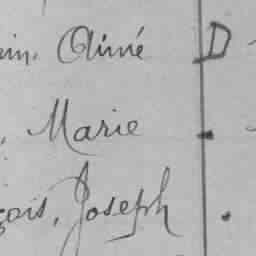 in, Aimé D
, Marie .
çois, Joseph .